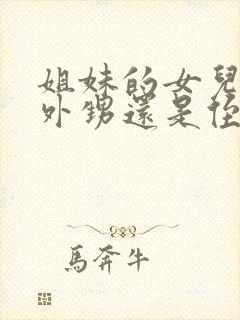 姐妹的女兒
外甥還是侄
馬奔牛